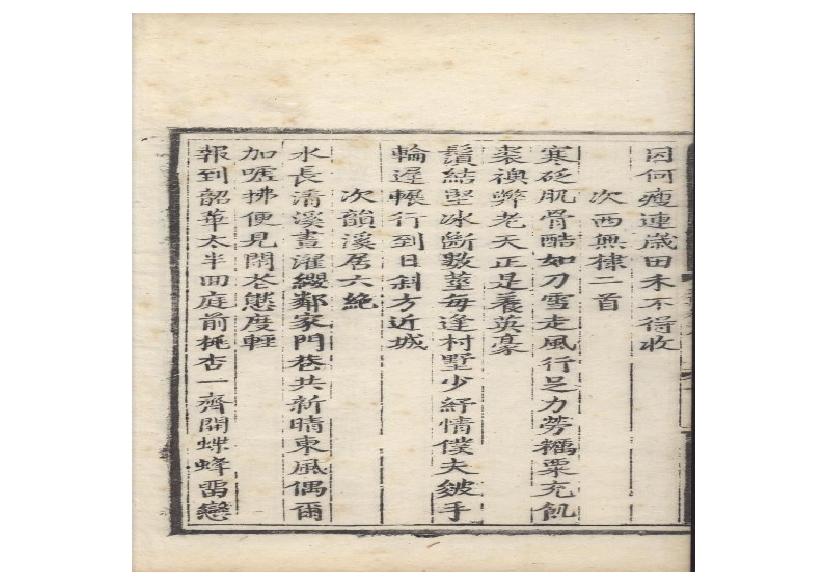 因何瘦連歲田禾不得收
次西無棣二首
寒砭肌骨酷如刀雪走風行足力勞糲粟充飢
裘襖弊老天正是養英豪
鬚結堅冰斷數莖每逢村墅少紓情僕夫皴手
輪遲輾行到日斜方近城
次韻溪居六絶
水長清溪晝濯纓鄰家門巷共新晴東風偶爾
加嗟拂便見閑花態度輕
報到韶華太半回庭前桃杏一齊開蝶蜂畱戀